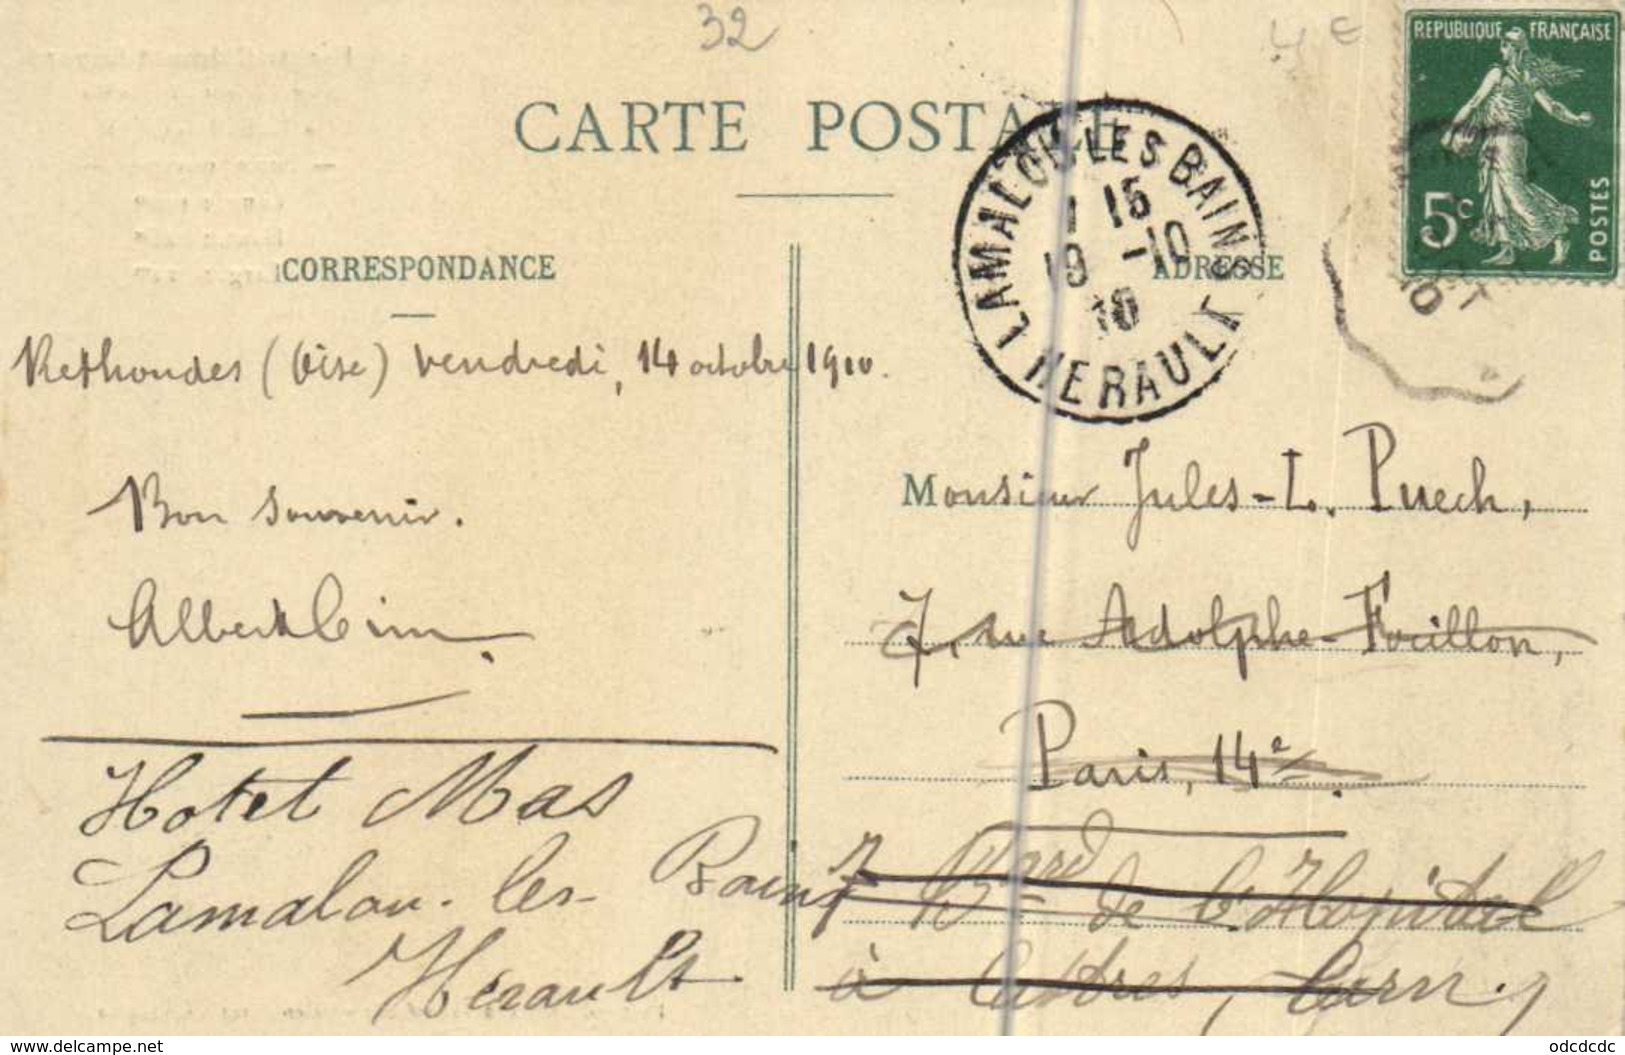 32
4€
REPUBLIQUE FRANÇAISE
5c
POSTES
CARTE POSTALE
LAMALOU-LES-BAINS
1 15
19 -10
10
HERAULT
CORRESPONDANCE
ADRESSE
Rethondes (Oise) vendredi, 14 octobre 1910.
Bon souvenir.
Albert Cim
Monsieur Jules-L. Puech,
7, rue Adolphe-Focillon,
Paris, 14e
7 Bard de l'Hopital
à Castres, Tarn.
Hotel Mas
Lamalou-les-Bains
Hérault
www.delcampe.net
odcdcdc